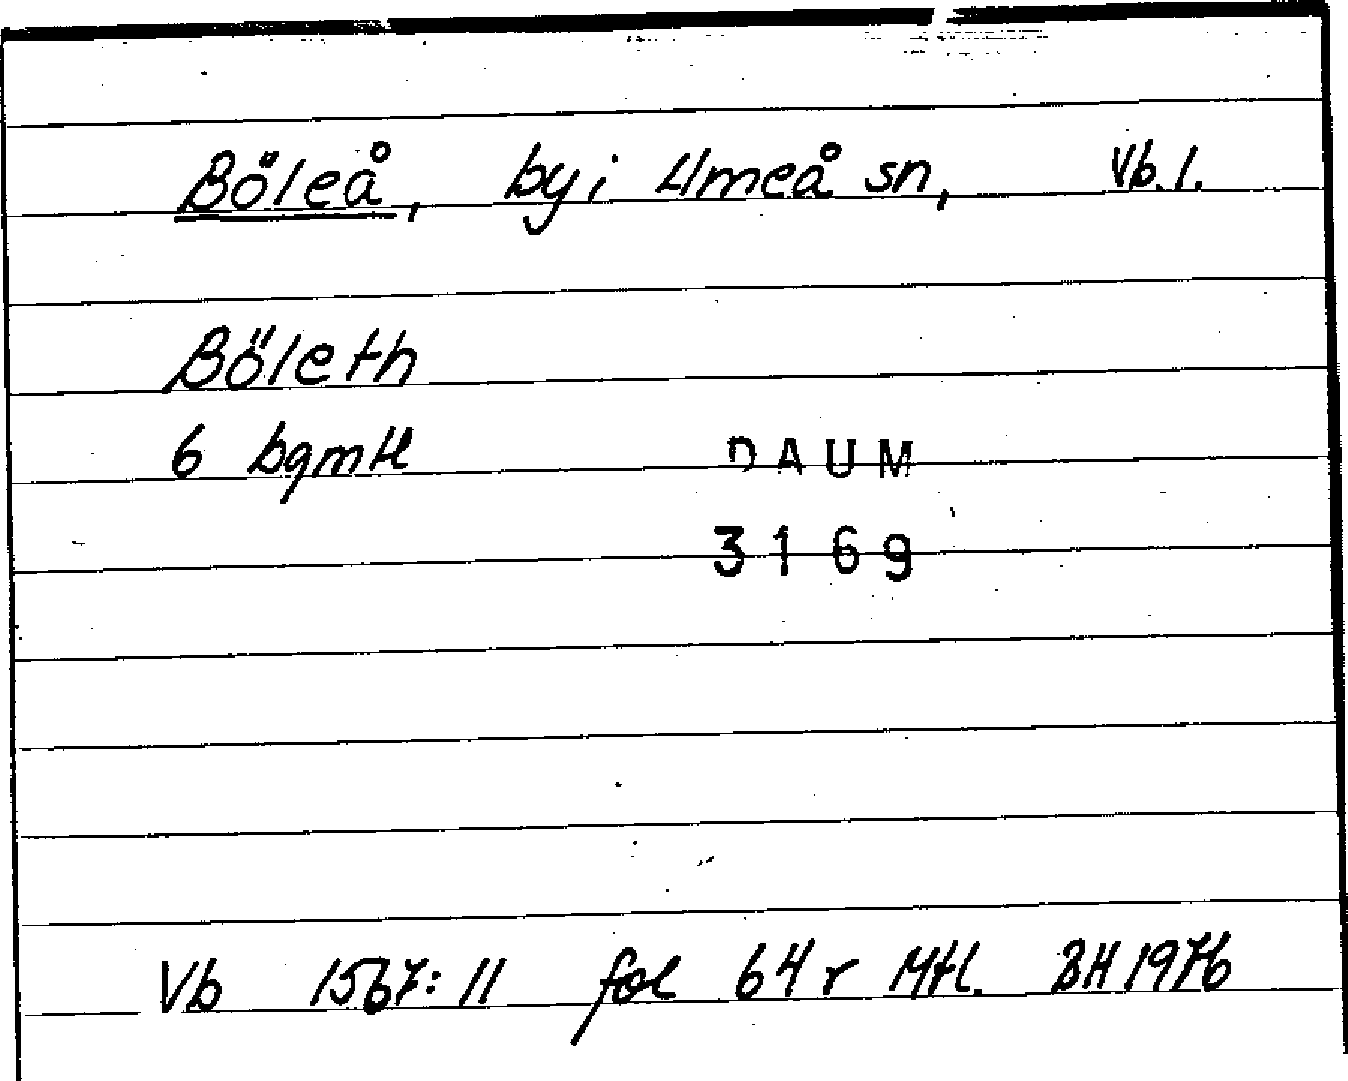 Böleå, by i Umeå sn, Vb. l.
Böleth
6 bgmtl
DAUM
3169
Vb 1567:11 fol 64 r Mtl. BH 1976